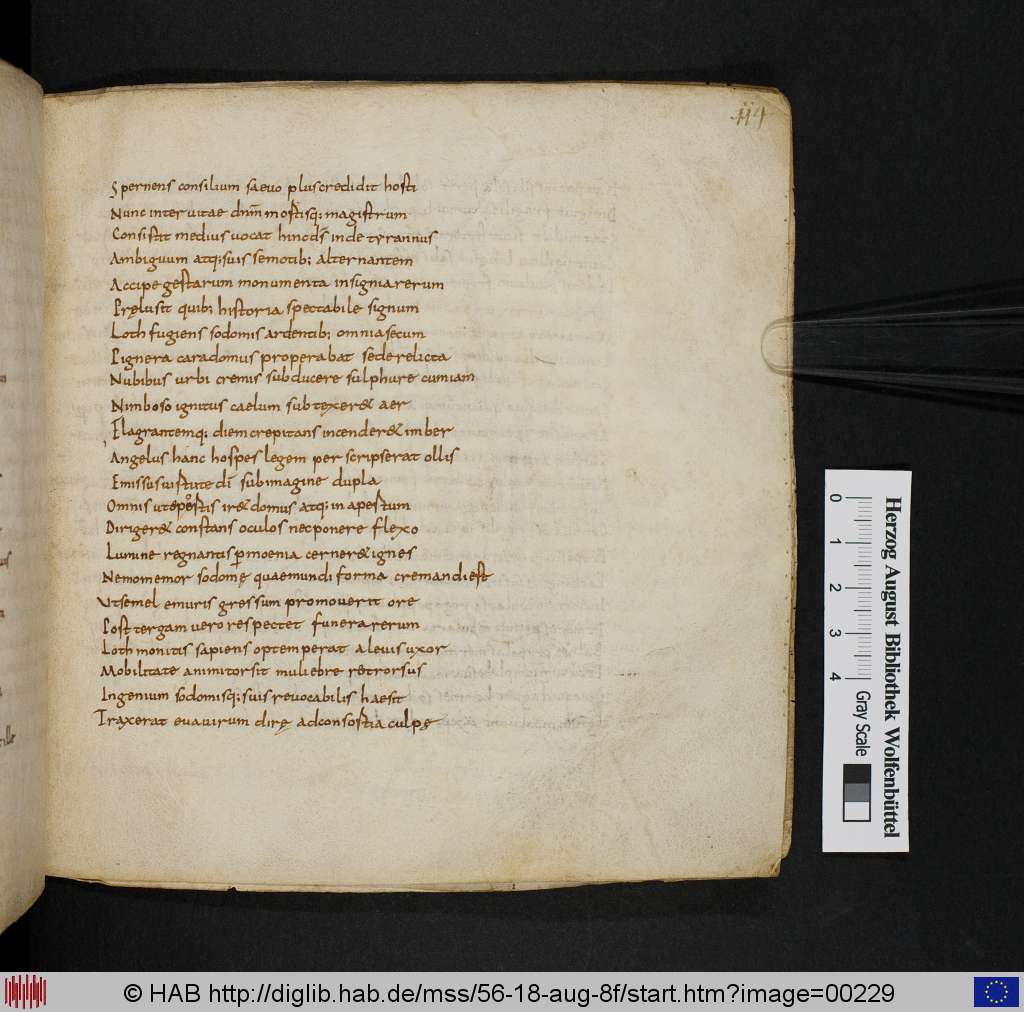 114
Spernens consilium saevo plus credidit hosti
Nunc inter vitae dn̄m mostisq; magistrum
Consistit medius uocat hinc ds̄ inde tyrannus
Ambiguum atq; suis semotib; alternantem
Accipe gestarum monumenta insignia rerum
Pręlusit quib; historia spectabile signum
Loth fugiens sodomis ardentib; omnia secum
Pignera cara domus properabat sede relicta
Nubibus urbi cremis subducere sulphure cum iam
Nimboso ignitus caelum subtexer& aer
Flagrantemq; diem crepitans incender& imber
Angelus hanc hospes legem perscripserat ollis
Emissus iustute dī sub imagine dupla
Omnis ut e postis ir& domus atq; in apestum
Diriger& constans oculos nec ponere flexo
Lumine regnantis p̱ moenia cerner& ignes
Nemo memor sodomę quae mundi forma cremandi est
Ut semel e muris gressum promoverit ore
Post tergam vero respectet funera rerum
Loth monitis sapiens optemperat a leuis uxor
Mobilitate animi torsit muliebre retrorsus
Ingenium sodomisq; suis revocabilis haesit
Traxerat eua uirum dirę ad consostia culpę
Herzog August Bibliothek Wolfenbüttel
0 1 2 3 4
Gray Scale
© HAB http://diglib.hab.de/mss/56-18-aug-8f/start.htm?image=00229